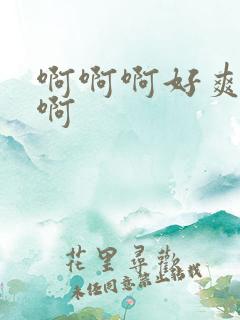 啊啊啊好爽
啊
花里尋歡
未经同意禁止转载